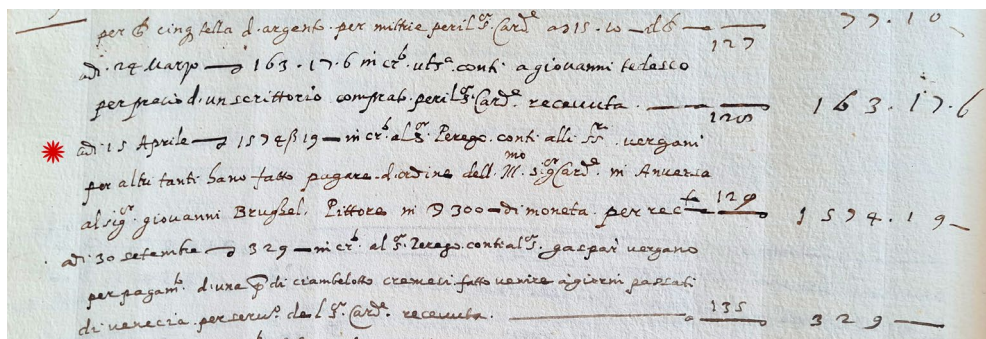 per 6 cinq tella d'argento per mittrie per il Sr. Carde a 15. 10 — 127 77.10
adi 24 Marzo — 163.17.6 in crb. utsa. conti a giovanni tedesco
per precio d'un scrittorio comprato per il Sr. Carde. recevuta. 128 163.17.6
adi 15 Aprile — 1574 ß 19 — in crb. al Sr. Perego. conti alli SSri. vergani
per altri tanti hano fatto pagare d'ordine dell Mmo sigr Carde. in Anversa
al sigr. giovanni Brughel. Pittore in 300 — di moneta. per rec 129 1574.19 —
adi 30 setembre — 329 — in crb. al Sr. Perego. conti al Sr. gaspar vergano
per pagamto. d'una di ciambelotto cremesi fatto venire a giorni passati
di venecia per servo. del Sr. Carde. recevuta. 135 329 —